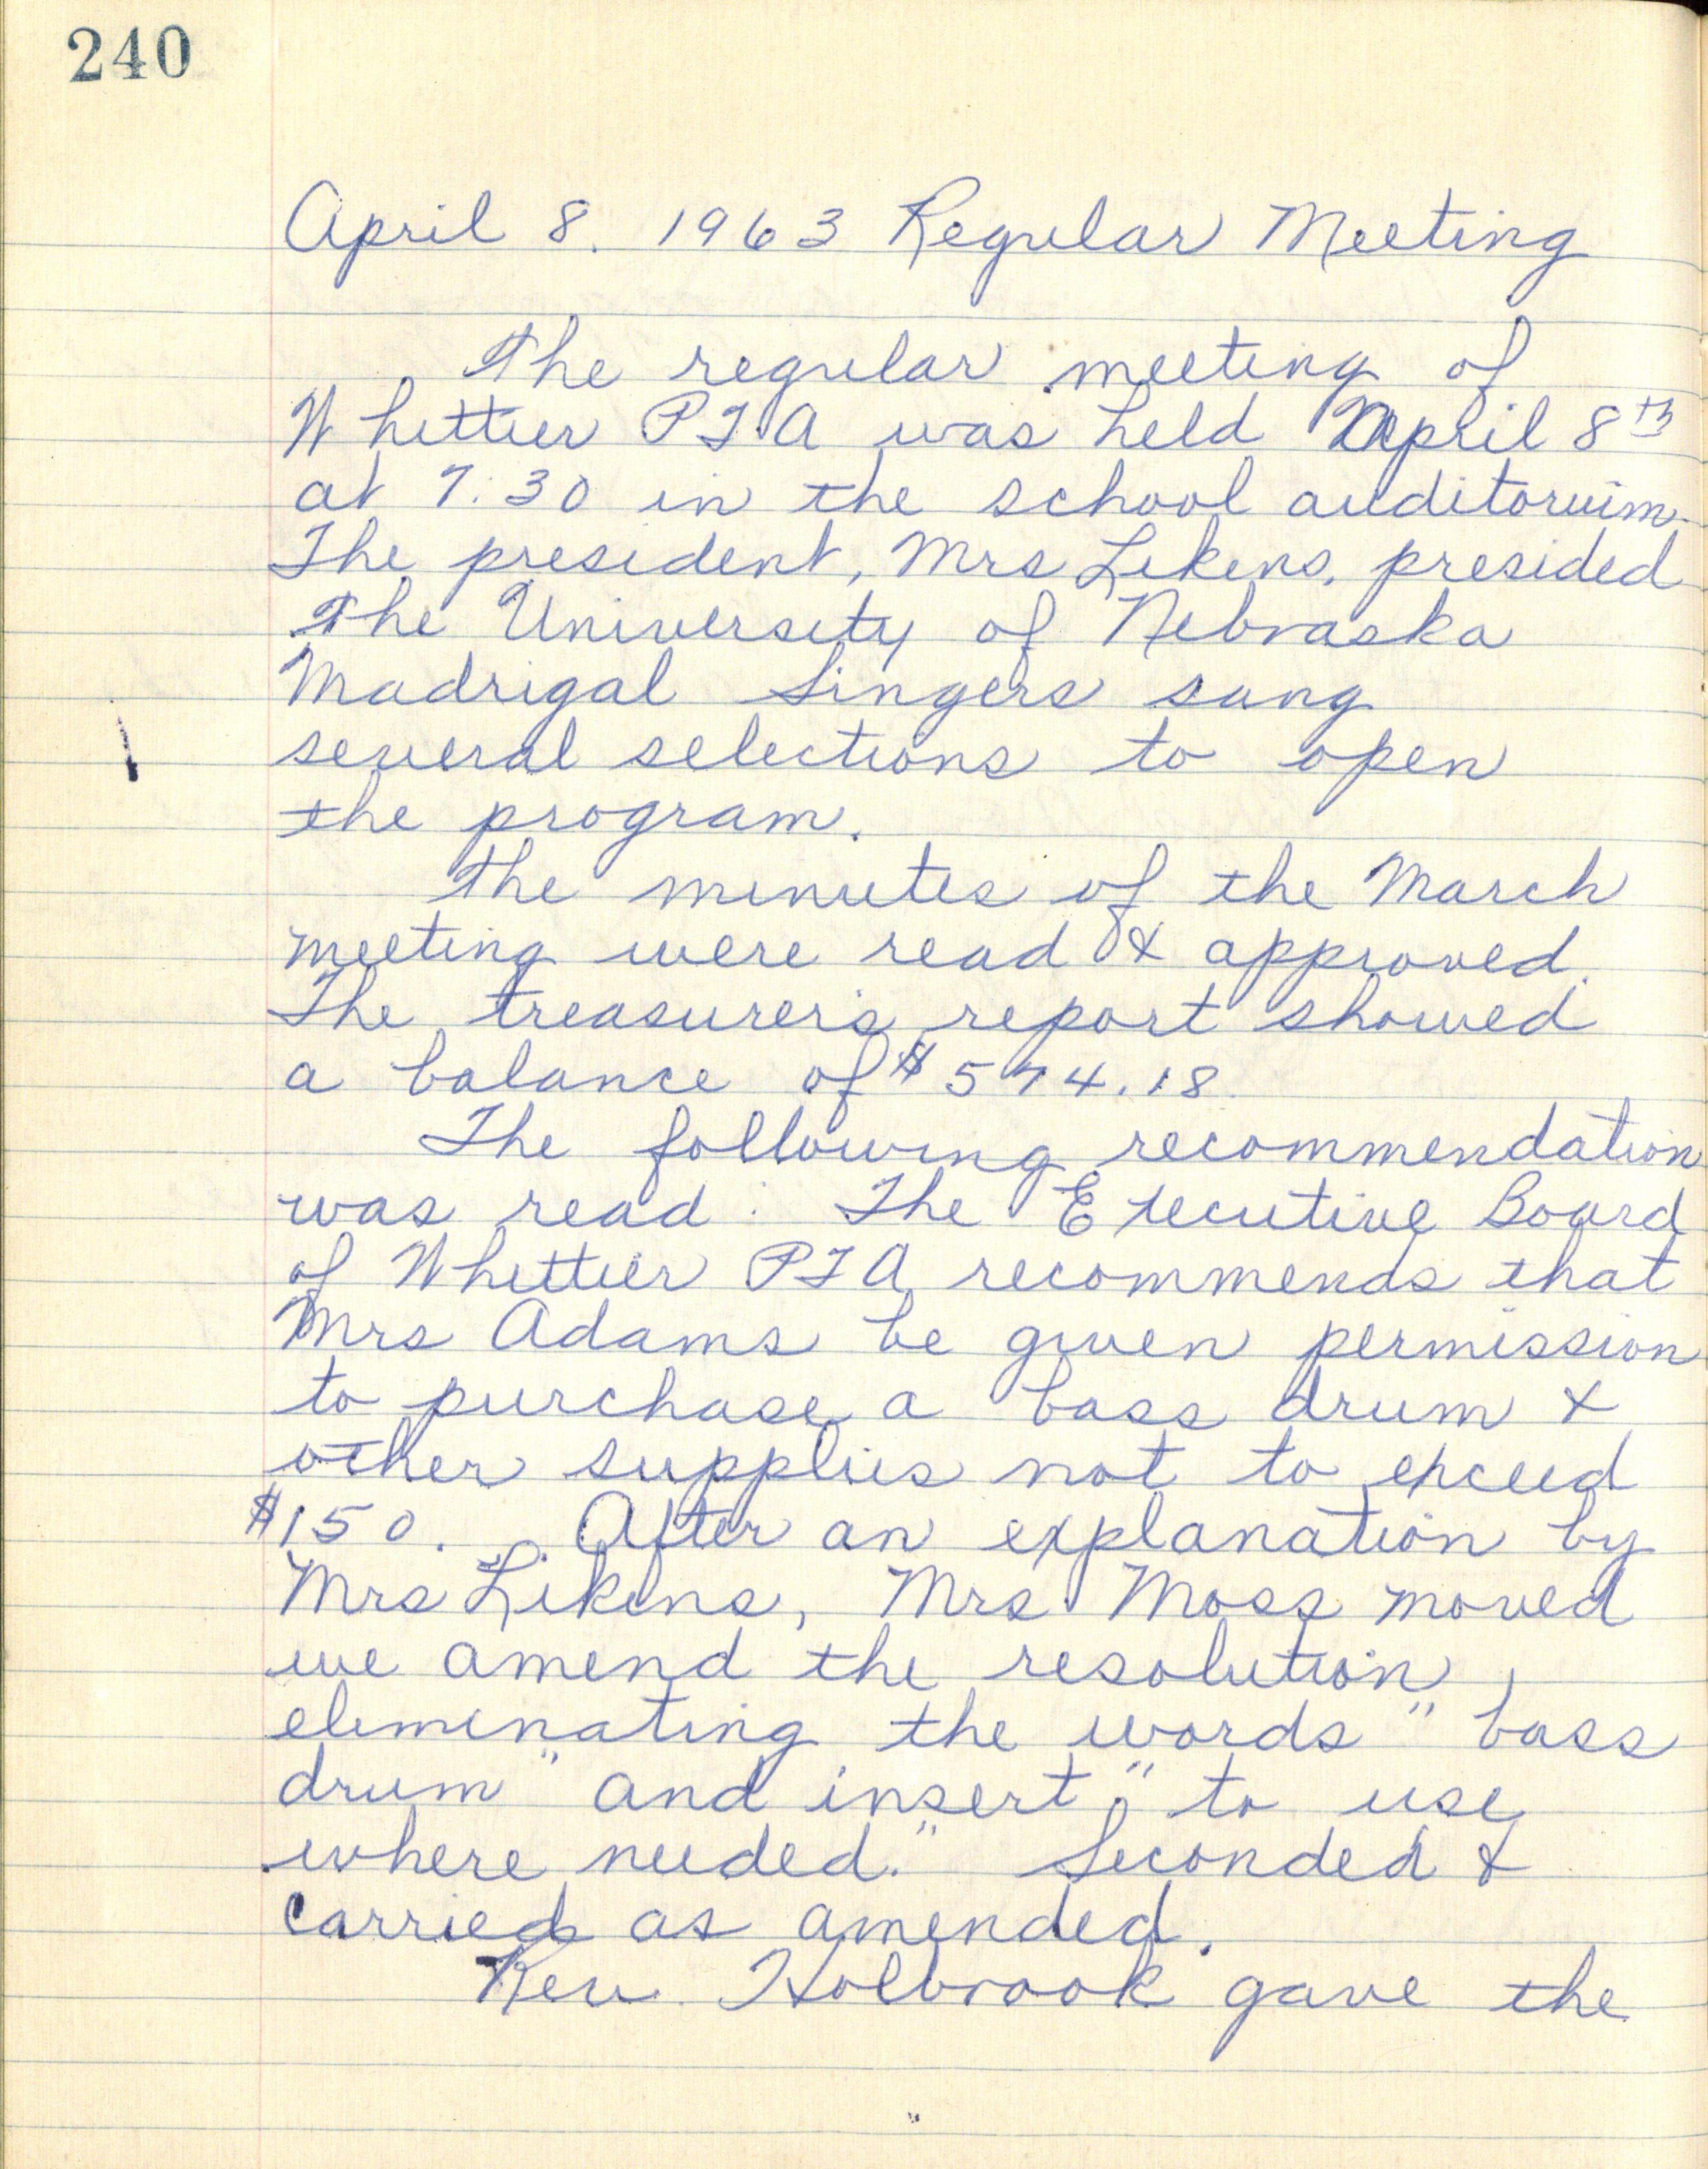 240
April 8. 1963 Regular Meeting
The regular meeting of
Whittier PTA was held April 8th
at 7:30 in the school auditorium.
The president, Mrs Likens, presided
The University of Nebraska
Madrigal Singers sang
several selections to open
the program.
The minutes of the March
meeting were read & approved.
The treasurer's report showed
a balance of $574.18.
The following recommendation
was read: The Executive Board
of Whittier PTA recommends that
Mrs Adams be given permission
to purchase a bass drum &
other supplies not to exceed
$150. After an explanation by
Mrs Likens, Mrs Moss moved
we amend the resolution,
eliminating the words "bass
drum" and insert "to use
where needed." Seconded &
carried as amended.
Rev. Holbrook gave the